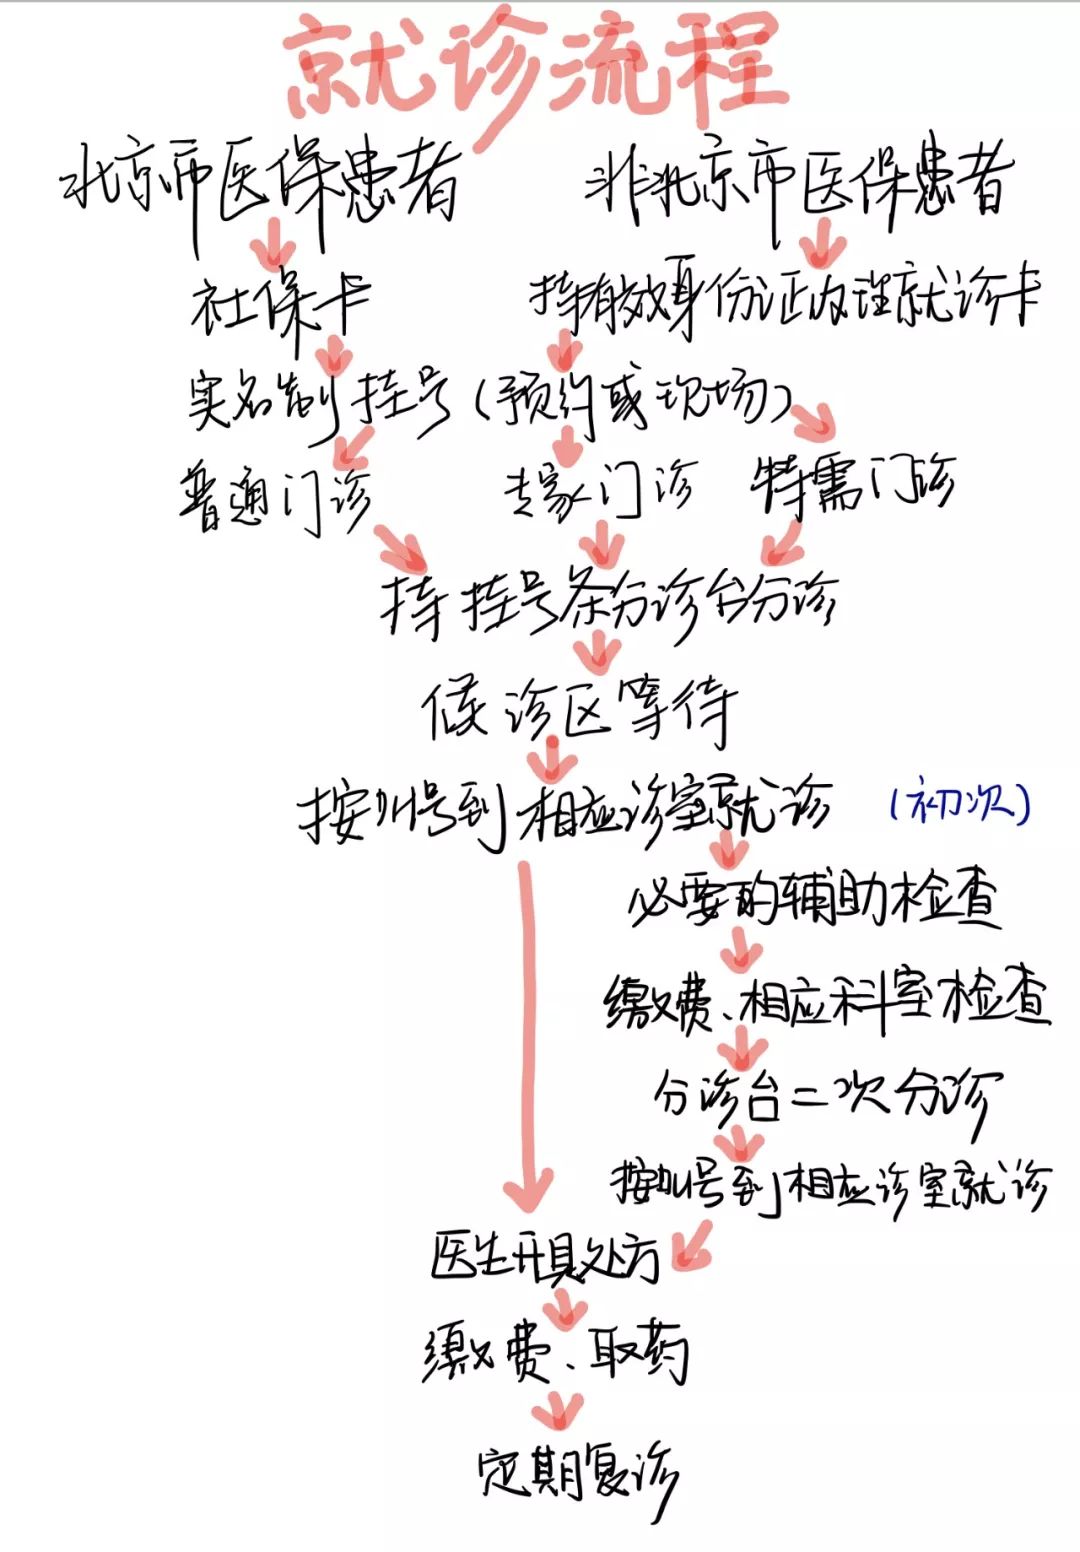 就诊流程
北京市医保患者 非北京市医保患者
社保卡 持有效身份证办理就诊卡
实名制挂号(预约或现场)
普通门诊 专家门诊 特需门诊
持挂号条分诊台分诊
候诊区等待
按叫号到相应诊室就诊 (初次)
必要的辅助检查
缴费、相应科室检查
分诊台二次分诊
按叫号到相应诊室就诊
医生开具处方
缴费、取药
定期复诊